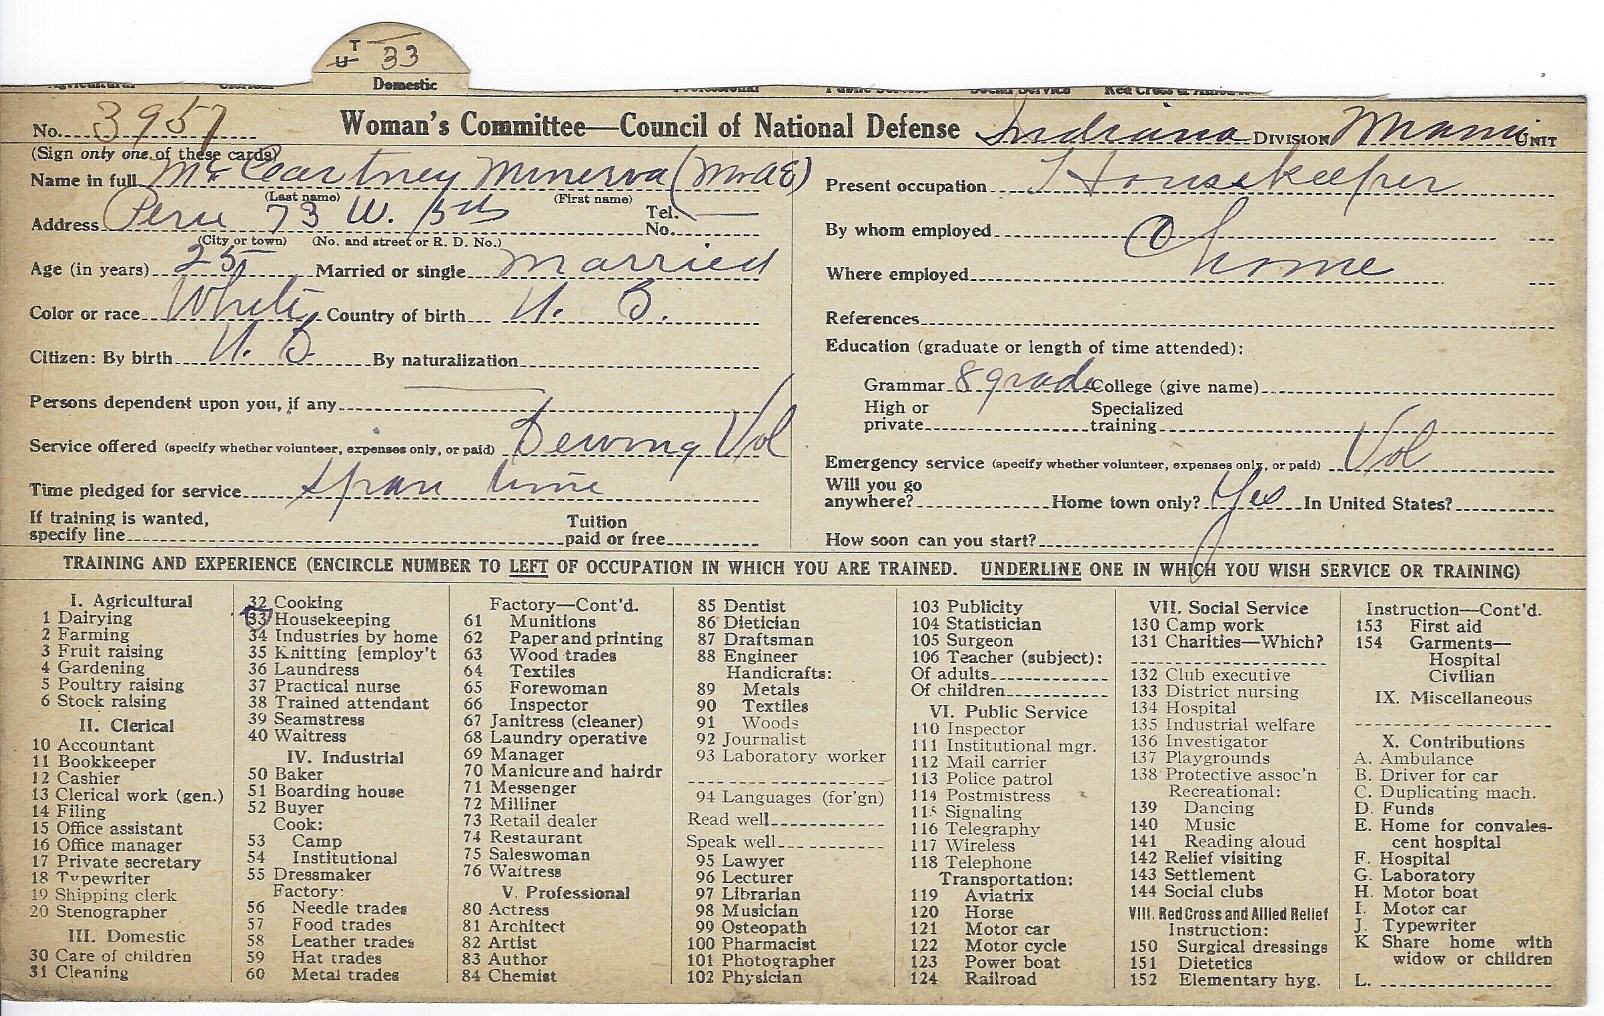 T
U 33
Domestic
No. 3957 Woman's Committee—Council of National Defense Indiana DIVISION Miami UNIT
(Sign only one of these cards)
Name in full McCartney Minerva (Mrs
(Last name) (First name)
Address Peru 73 W. 5th Tel. No. —
(City or town) (No. and street or R. D. No.)
Age (in years) 25 Married or single Married
Color or race White Country of birth U. S.
Citizen: By birth U. S. By naturalization
Persons dependent upon you, if any —
Service offered (specify whether volunteer, expenses only, or paid) Sewing Vol
Time pledged for service spare time
If training is wanted, specify line Tuition paid or free
Present occupation Housekeeper
By whom employed
Where employed home
References
Education (graduate or length of time attended):
Grammar 8 grade College (give name)
High or private Specialized training
Emergency service (specify whether volunteer, expenses only, or paid) Vol
Will you go anywhere? Home town only? Yes In United States?
How soon can you start?
TRAINING AND EXPERIENCE (ENCIRCLE NUMBER TO LEFT OF OCCUPATION IN WHICH YOU ARE TRAINED. UNDERLINE ONE IN WHICH YOU WISH SERVICE OR TRAINING)
I. Agricultural
1 Dairying
2 Farming
3 Fruit raising
4 Gardening
5 Poultry raising
6 Stock raising
II. Clerical
10 Accountant
11 Bookkeeper
12 Cashier
13 Clerical work (gen.)
14 Filing
15 Office assistant
16 Office manager
17 Private secretary
18 Typewriter
19 Shipping clerk
20 Stenographer
III. Domestic
30 Care of children
31 Cleaning
32 Cooking
33 Housekeeping
34 Industries by home
35 Knitting [employ't
36 Laundress
37 Practical nurse
38 Trained attendant
39 Seamstress
40 Waitress
IV. Industrial
50 Baker
51 Boarding house
52 Buyer
Cook:
53 Camp
54 Institutional
55 Dressmaker
Factory:
56 Needle trades
57 Food trades
58 Leather trades
59 Hat trades
60 Metal trades
Factory—Cont'd.
61 Munitions
62 Paper and printing
63 Wood trades
64 Textiles
65 Forewoman
66 Inspector
67 Janitress (cleaner)
68 Laundry operative
69 Manager
70 Manicure and hairdr
71 Messenger
72 Milliner
73 Retail dealer
74 Restaurant
75 Saleswoman
76 Waitress
V. Professional
80 Actress
81 Architect
82 Artist
83 Author
84 Chemist
85 Dentist
86 Dietician
87 Draftsman
88 Engineer
Handicrafts:
89 Metals
90 Textiles
91 Woods
92 Journalist
93 Laboratory worker
94 Languages (for'gn)
Read well
Speak well
95 Lawyer
96 Lecturer
97 Librarian
98 Musician
99 Osteopath
100 Pharmacist
101 Photographer
102 Physician
103 Publicity
104 Statistician
105 Surgeon
106 Teacher (subject):
Of adults
Of children
VI. Public Service
110 Inspector
111 Institutional mgr.
112 Mail carrier
113 Police patrol
114 Postmistress
115 Signaling
116 Telegraphy
117 Wireless
118 Telephone
Transportation:
119 Aviatrix
120 Horse
121 Motor car
122 Motor cycle
123 Power boat
124 Railroad
VII. Social Service
130 Camp work
131 Charities—Which?
132 Club executive
133 District nursing
134 Hospital
135 Industrial welfare
136 Investigator
137 Playgrounds
138 Protective assoc'n
Recreational:
139 Dancing
140 Music
141 Reading aloud
142 Relief visiting
143 Settlement
144 Social clubs
VIII. Red Cross and Allied Relief
Instruction:
150 Surgical dressings
151 Dietetics
152 Elementary hyg.
Instruction—Cont'd.
153 First aid
154 Garments—
Hospital
Civilian
IX. Miscellaneous
X. Contributions
A. Ambulance
B. Driver for car
C. Duplicating mach.
D. Funds
E. Home for convales-
cent hospital
F. Hospital
G. Laboratory
H. Motor boat
I. Motor car
J. Typewriter
K Share home with
widow or children
L.